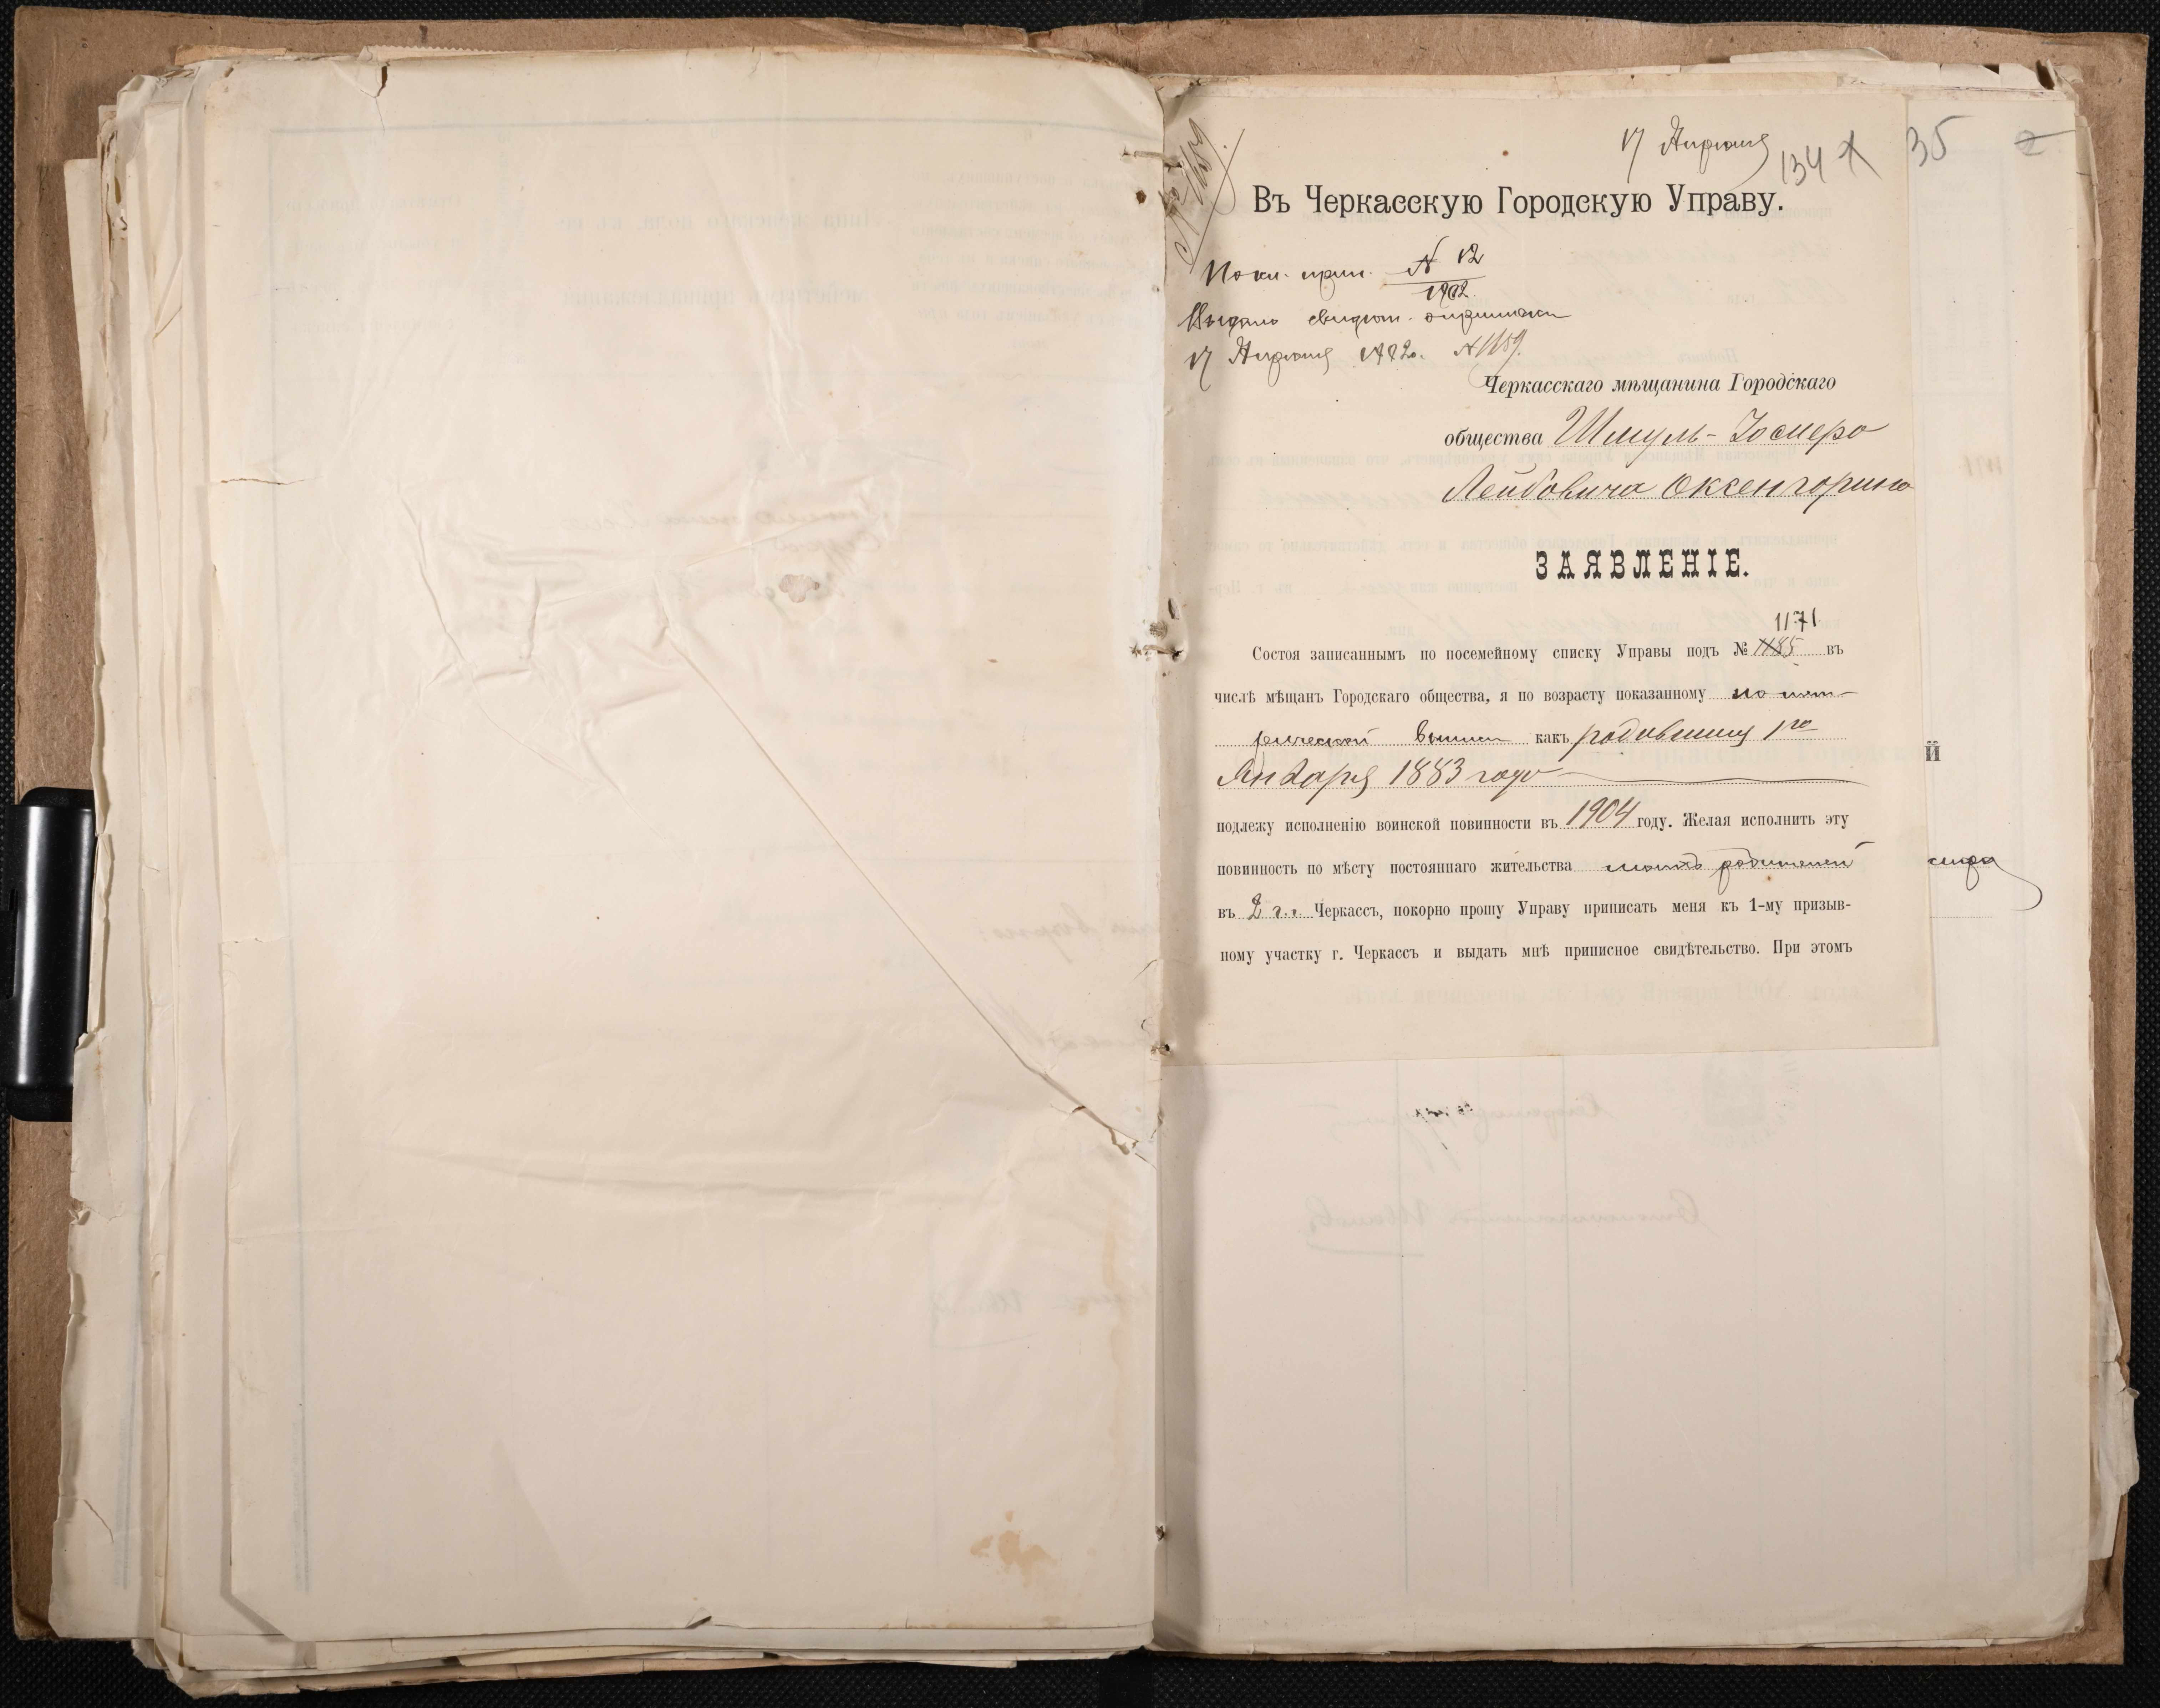 17 Апрѣля
134 35 2
№ 1159.
Въ Черкасскую Городскую Управу.
№ 12
1902
17 Апрѣля 1902 г. № 1159.
Черкасскаго мѣщанина Городскаго
общества Шмуль-Іосифа
Лейбовича Оксенгорна
ЗАЯВЛЕНІЕ.
1171
Состоя записаннымъ по посемейному списку Управы подъ № 1185 въ
числѣ мѣщанъ Городскаго общества, я по возрасту показанному по мет-
рической выписи какъ родившійся 1го
Января 1883 года
подлежу исполненію воинской повинности въ 1904 году. Желая исполнить эту
повинность по мѣсту постояннаго жительства моихъ родителей
въ г. Черкассъ, покорно прошу Управу приписать меня къ 1-му призыв-
ному участку г. Черкассъ и выдать мнѣ приписное свидѣтельство. При этомъ
й